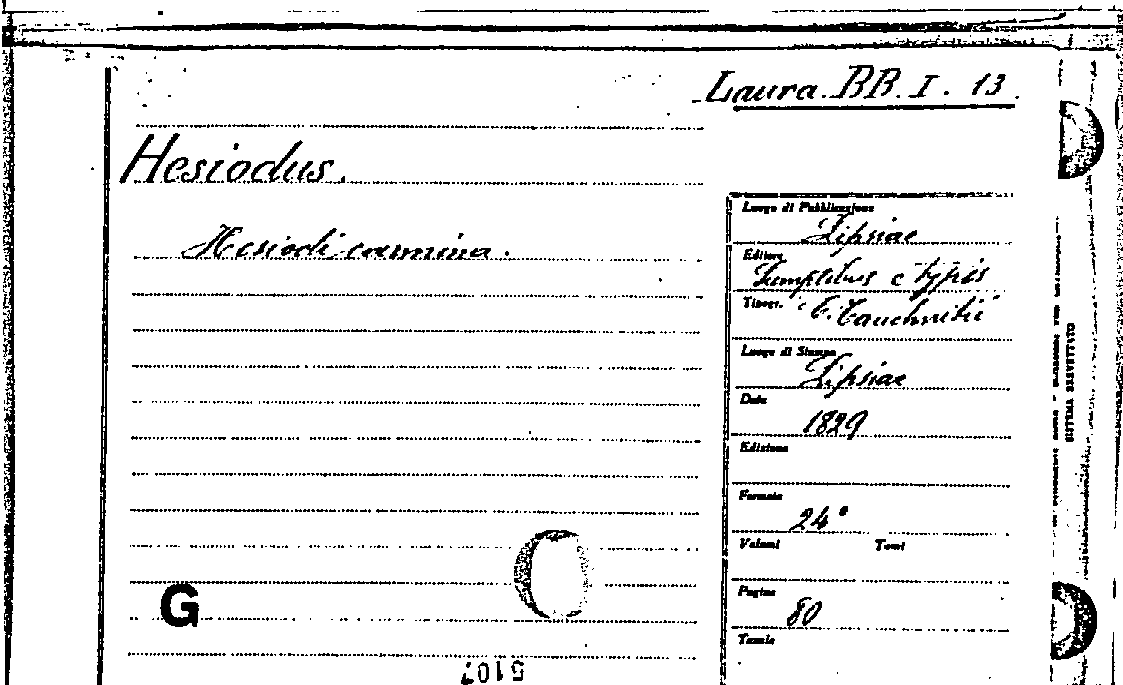 Laura BB. I. 13.
Hesiodus.
Hesiodi carmina.
Luogo di Pubblicazione
Lipsiae
Editore
Sumptibus e typis
Tipogr.
C. Tauchnitii
Luogo di Stampa
Lipsiae
Data
1829
Edizione
Formato
24°
Volumi Tomi
Pagine
80
Tavole
G
5107
SISTEMA BREVETTATO